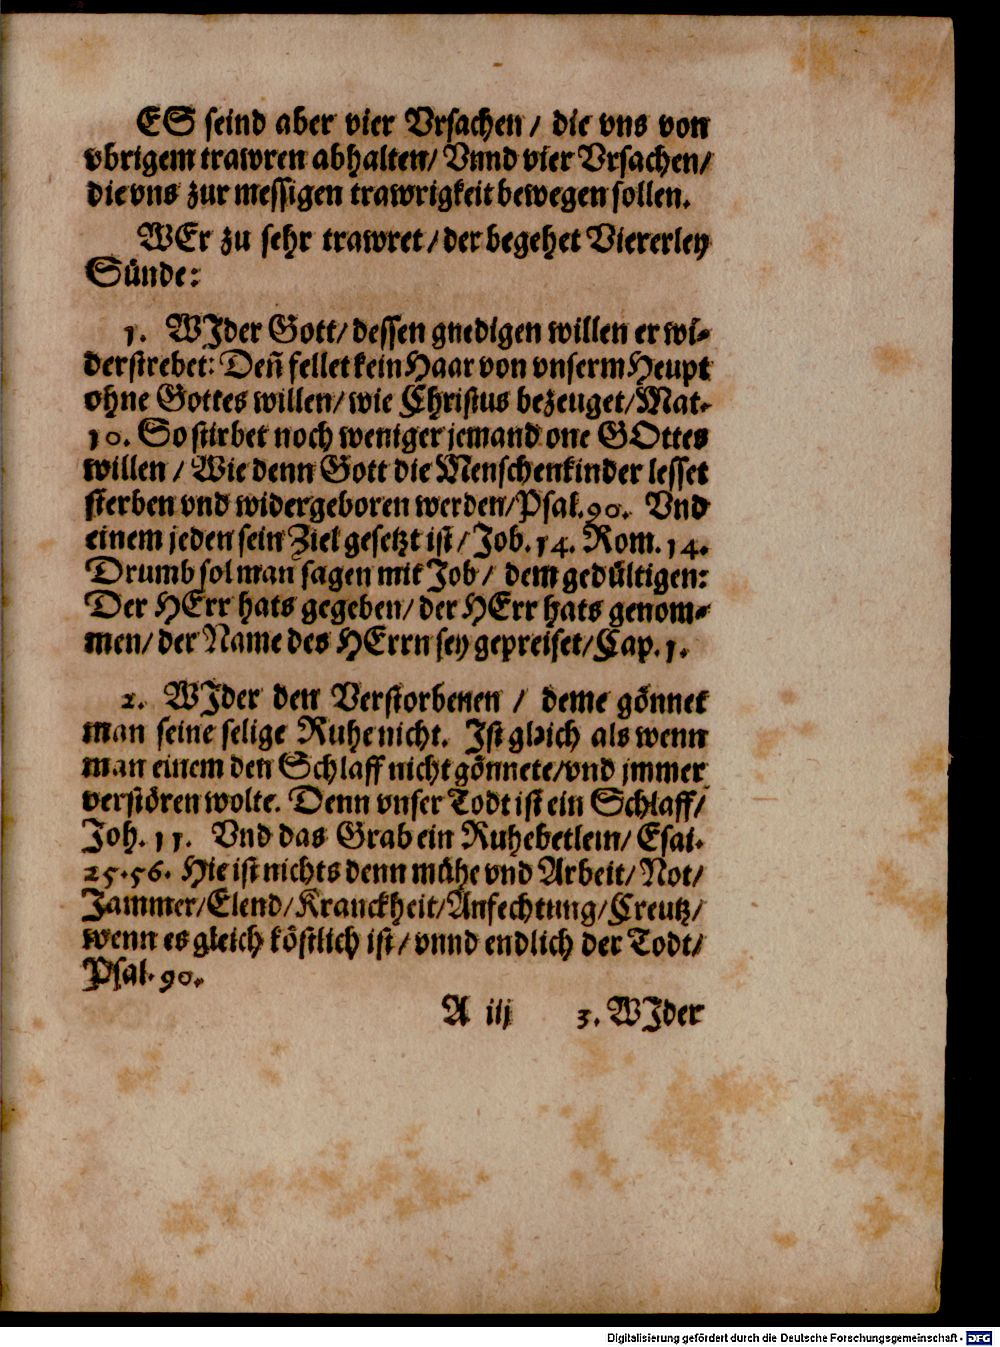 ES seind aber vier Vrsachen / die vns von
vbrigem trawren abhalten/ Vnnd vier Vrsachen/
die vns zur messigen trawrigkeit bewegen sollen.
WEr zu sehr trawret / der begehet Viererley
Sünde:
1. WJder Gott/ dessen gnedigen willen er wi-
derstrebet: Deñ fellet kein Haar von vnserm Heupt
ohne Gottes willen/ wie Christus bezeuget/ Mat.
10. So stirbet noch weniger jemand one GOttes
willen / Wie denn Gott die Menschenkinder lesset
sterben vnd widergeboren werden/ Psal. 90. Vnd
einem jeden sein Ziel gesetzt ist / Job. 14. Rom. 14.
Drumb sol man sagen mit Job / dem gedültigen:
Der HErr hats gegeben/ der HErr hats genom-
men/ der Name des HErrn sey gepreiset/ Cap. 1.
2. WJder den Verstorbenen / deme gönnet
man seine selige Ruhe nicht. Jst gleich als wenn
man einem den Schlaff nicht gönnete/ vnd jmmer
verstören wolte. Denn vnser Todt ist ein Schlaff/
Joh. 11. Vnd das Grab ein Ruhebetlein/ Esai.
25. 56. Hie ist nichts denn mühe vnd Arbeit/ Not/
Jammer/ Elend/ Kranckheit/ Anfechtung/ Creutz/
wenn es gleich köstlich ist / vnnd endlich der Todt/
Psal. 90.
A iij 3. WJder
Digitalisierung gefördert durch die Deutsche Forschungsgemeinschaft - DFG